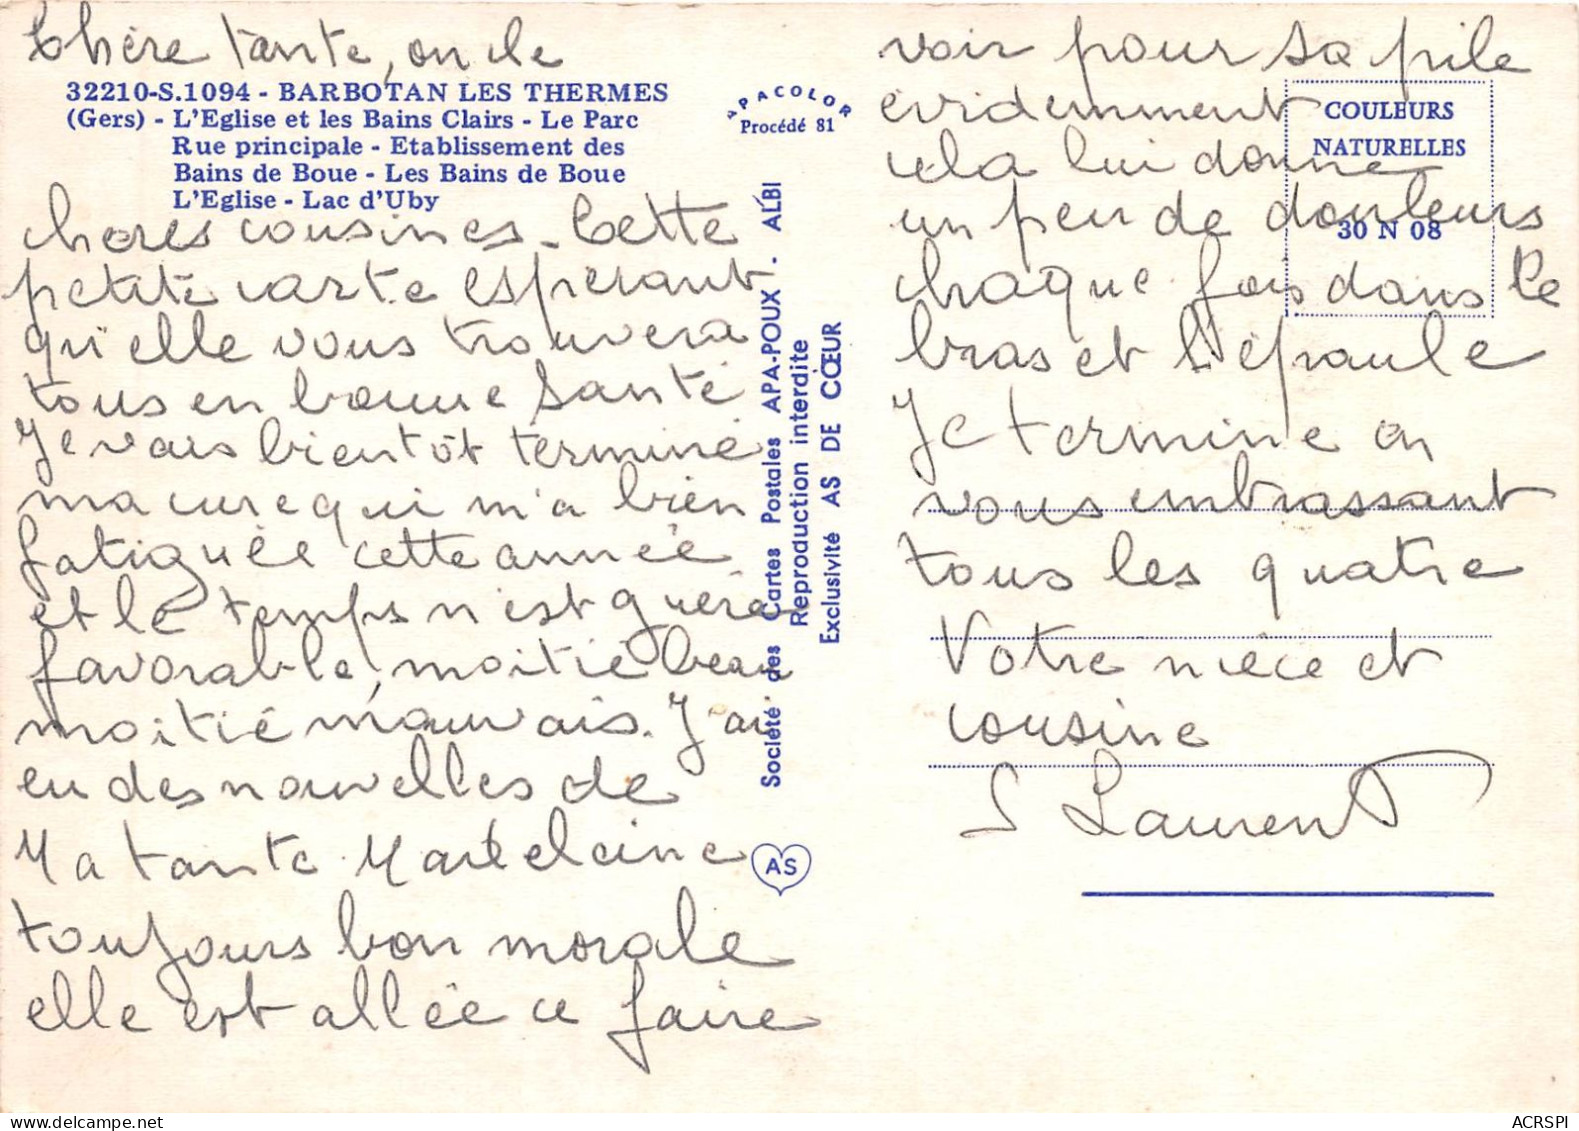 Chère tante, oncle
32210-S.1094 - BARBOTAN LES THERMES
(Gers) - L'Eglise et les Bains Clairs - Le Parc
Rue principale - Etablissement des
Bains de Boue - Les Bains de Boue
L'Eglise - Lac d'Uby
chères cousines. Cette
petite carte espérant
qu'elle vous trouvera
tous en bonne santé
Je vais bientôt terminé
ma cure qui m'a bien
fatiguée cette année
et le temps n'est guère
favorable, moitié beau
moitié mauvais. J'ai
eu des nouvelles de
Ma tante Madeleine
toujours bon morale
elle est allée ce faire
APACOLOR
Procédé 81
Société des Cartes Postales APA-POUX - ALBI
Reproduction interdite
Exclusivité AS DE CŒUR
AS
COULEURS
NATURELLES
30 N 08
voir pour sa pile
évidemment
cela lui donne
un peu de douleurs
chaque fois dans le
bras et l'épaule
Je termine en
vous embrassant
tous les quatre
Votre nièce et
cousine
S Laurent
ACRSPI